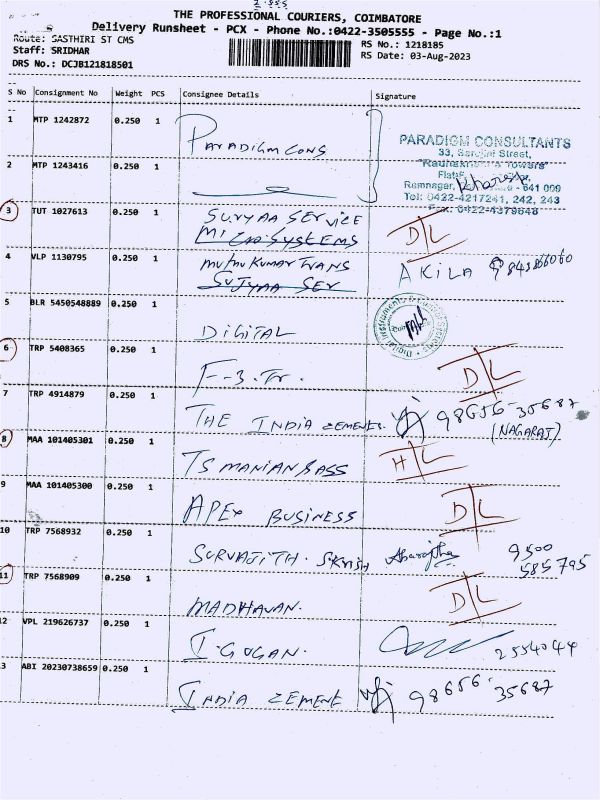 THE PROFESSIONAL COURIERS, COIMBATORE
Delivery Runsheet - PCX - Phone No.:0422-3505555 - Page No.:1
Route: SASTHIRI ST CMS
Staff: SRIDHAR
DRS No.: DCJB121818501
RS No.: 1218185
RS Date: 03-Aug-2023
S No Consignment No Weight PCS Consignee Details Signature
1 MTP 1242872 0.250 1 PARADIGM CONS
PARADIGM CONSULTANTS
33, Sarojini Street,
Towers"
Ramnagar, - 641 009
Tel: 0422-4217241, 242, 243
Fax: 0422-4379648
2 MTP 1243416 0.250 1
3 TUT 1027613 0.250 1 SURYAA SERVICE D/L
MICRO SYSTEMS
4 VLP 1130795 0.250 1 MUTHU KUMAR TRANS AKILA
5 BLR 5450548889 0.250 1 DIGITAL
6 TRP 5408365 0.250 1 F-3. Tr. D/L
7 TRP 4914879 0.250 1 THE INDIA CEMENTS. 98656-35687
(NAGARAJ)
8 MAA 101405301 0.250 1 TS MANIAN BASS H/L
9 MAA 101405300 0.250 1 APEX BUSINESS D/L
10 TRP 7568932 0.250 1 SURVAJITH. 9500
585795
11 TRP 7568909 0.250 1 MADHAVAN. D/L
12 VPL 219626737 0.250 1 I. GOGAN. 2554044
13 ABI 20230738659 0.250 1 INDIA CEMENT 98656-35687